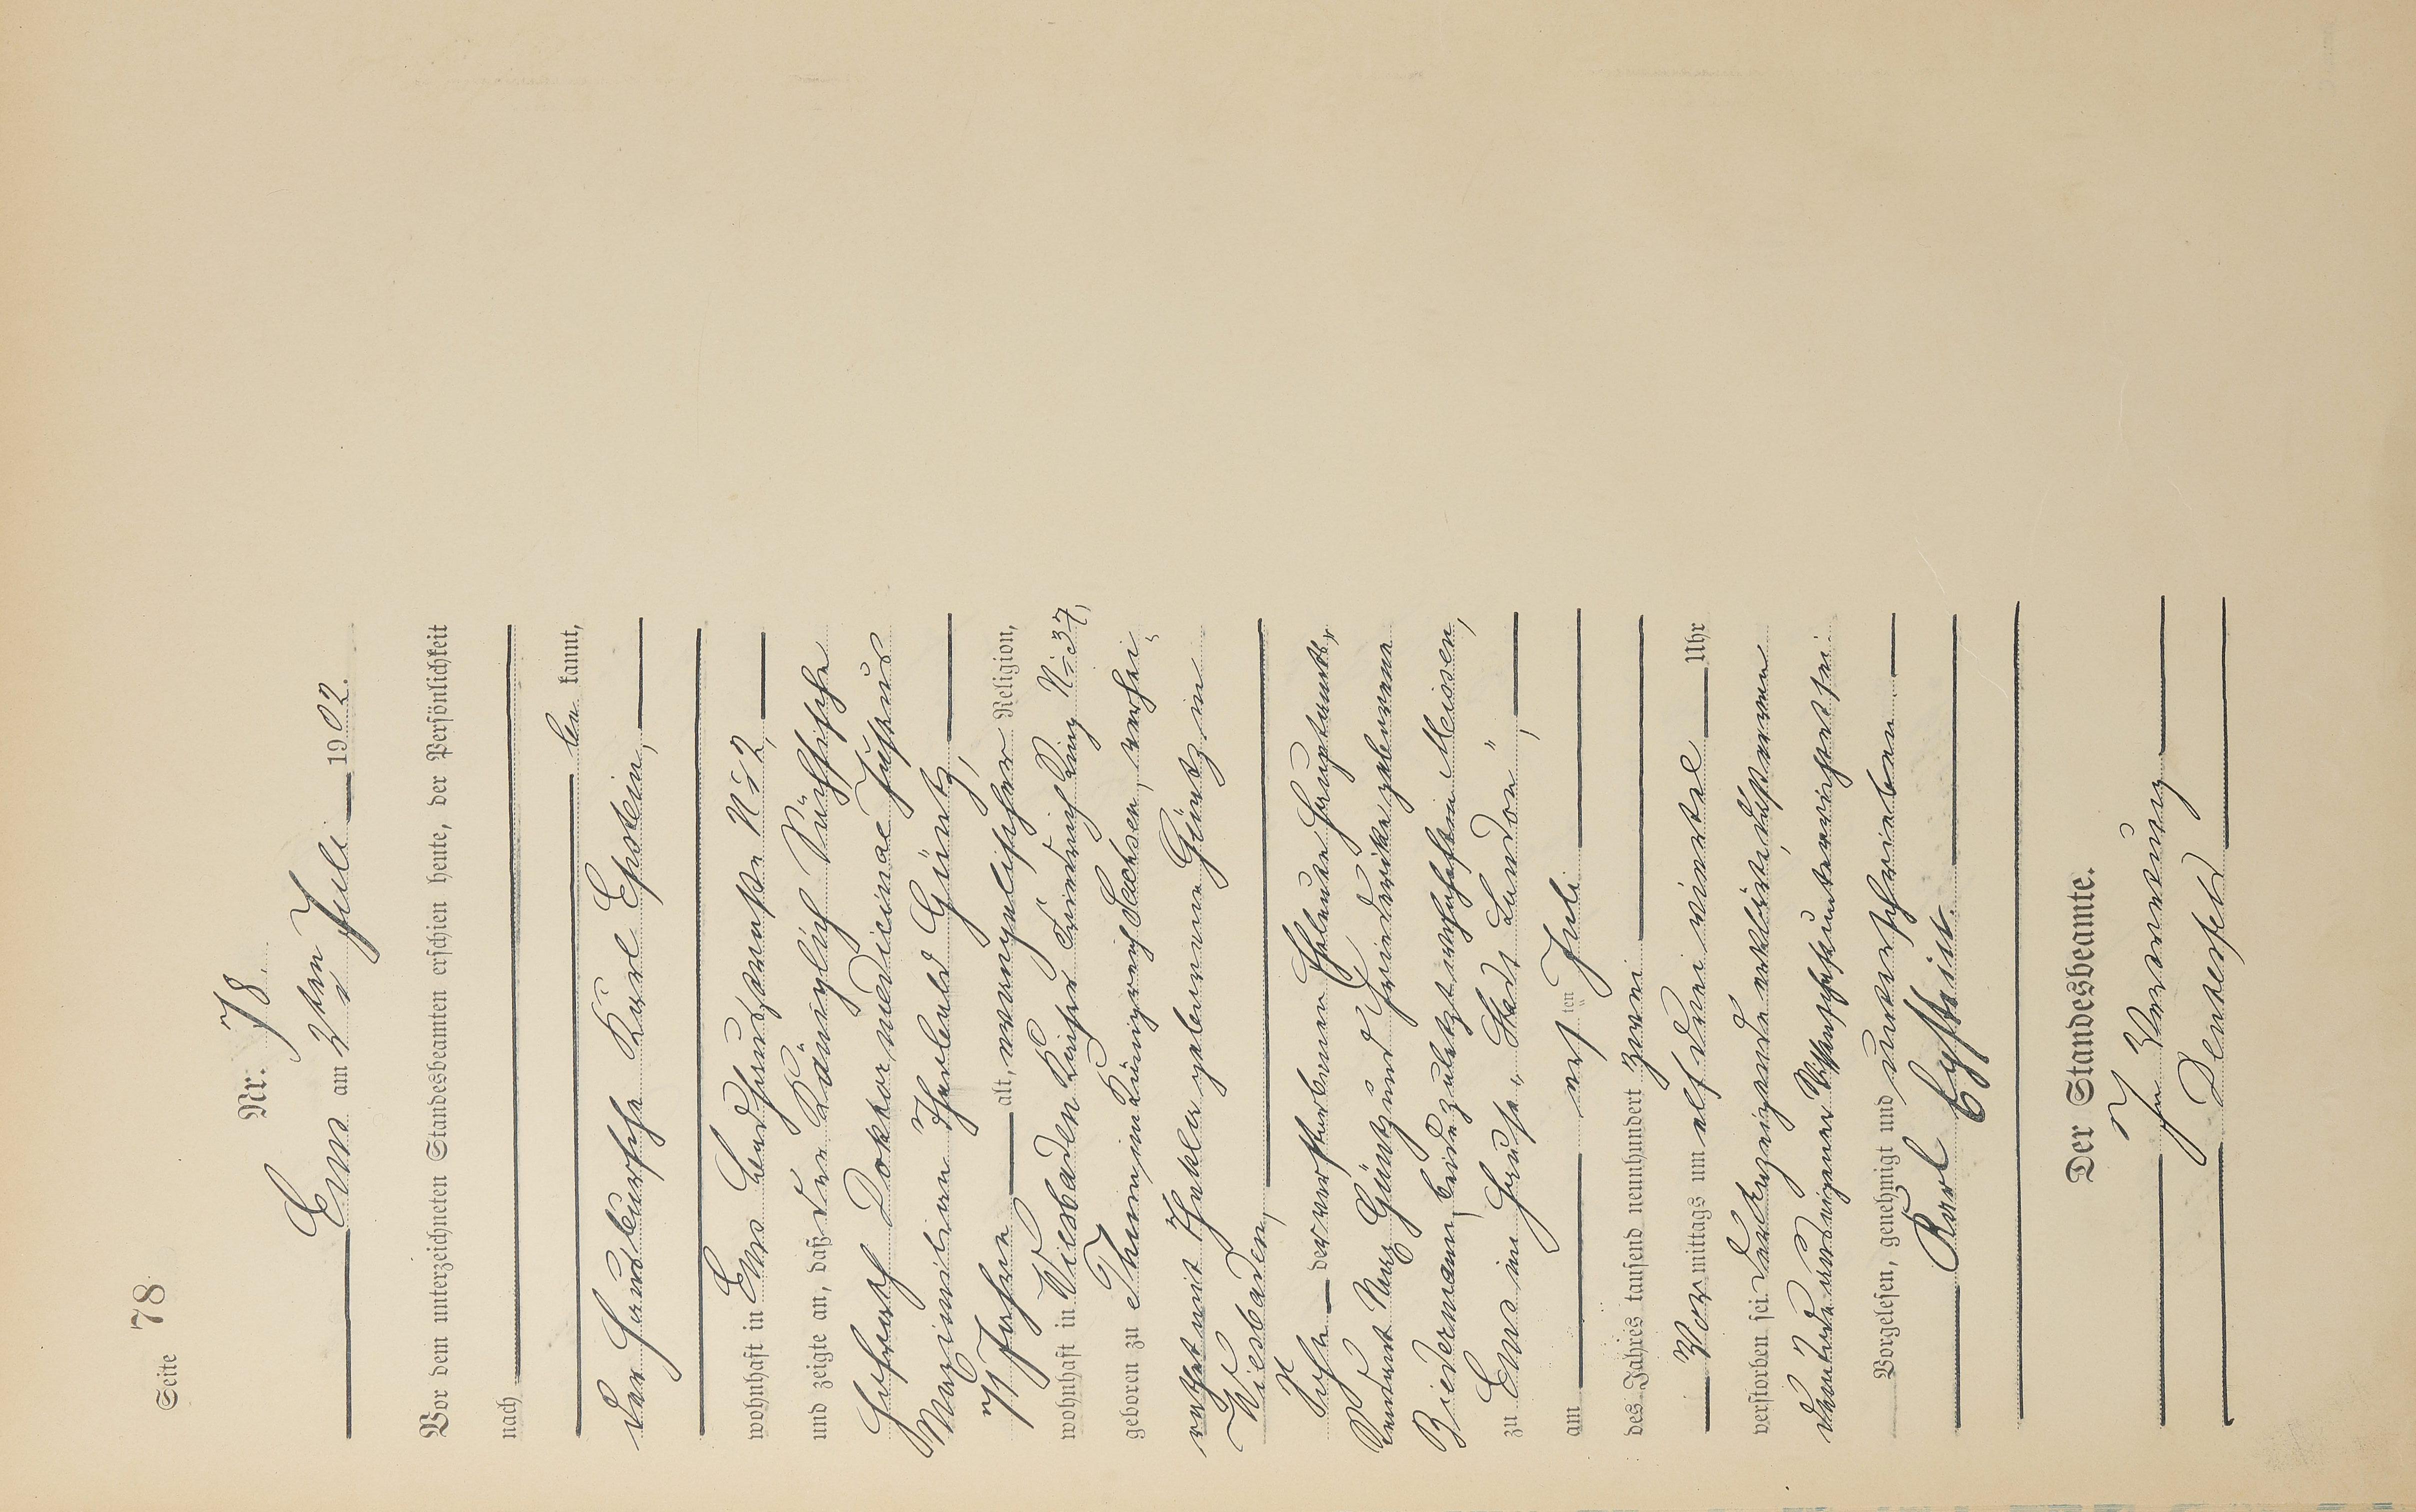 Seite 78
Nr. 78.
Ems am 2ten Juli 1902.
Vor dem unterzeichneten Standesbeamten erschien heute, der Persönlichkeit
nach
be kannt,
der Hausbursche Karl Epstein,
wohnhaft in Ems Lahnstraße No 2,
und zeigte an, daß der Königlich Sächsische
Hofrath Doktor medicinae Justus
Maximilian Theobald Güntz,
71 Jahre alt, evangelischer Religion,
wohnhaft in Wiesbaden Kaiser Friedrich Ring No 37,
geboren zu Thum, im Königreich Sachsen, verhei-
rathet mit Thekla geborenen Güntz in
Wiesbaden,
Sohn der verstorbenen Eheleute
Güntz und Friederike geborenen
Biedermann, beide zuletzt wohnhaft in Meissen,
zu Ems im Hause „Stadt London“,
am ersten Juli
des Jahres tausend neunhundert zwei
Vormittags um elf drei viertel Uhr
verstorben sei. Der Anzeigende erklärte, daß er von
dem Tode aus eigener Wissenschaft unterrichtet sei.
Vorgelesen, genehmigt und unterschrieben
Karl Epstein.
Der Standesbeamte.
In Vertretung